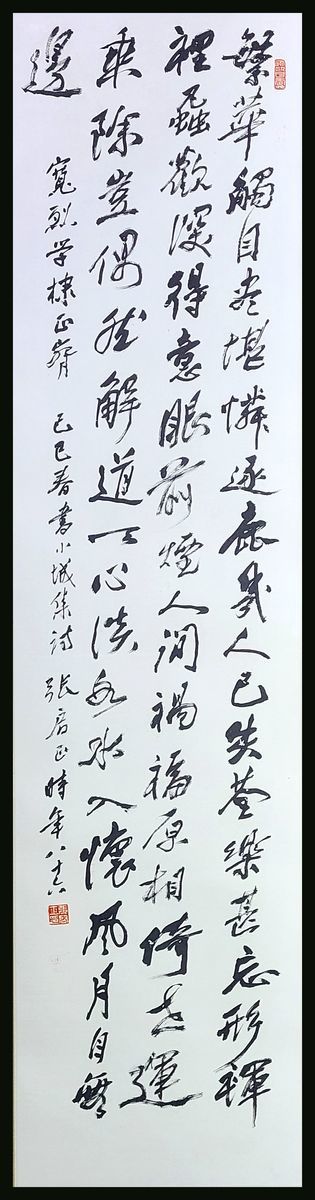 繁華觸目尽堪憐逐鹿幾人已失荃樂甚忘形褌
裡蝨歡深得意眼前煙人間禍福原相倚世運
乘除豈偶然解道天心淡如水入懷風月自無
邊
寬烈学棣正 己巳春書小城集詩 張 時年八十六